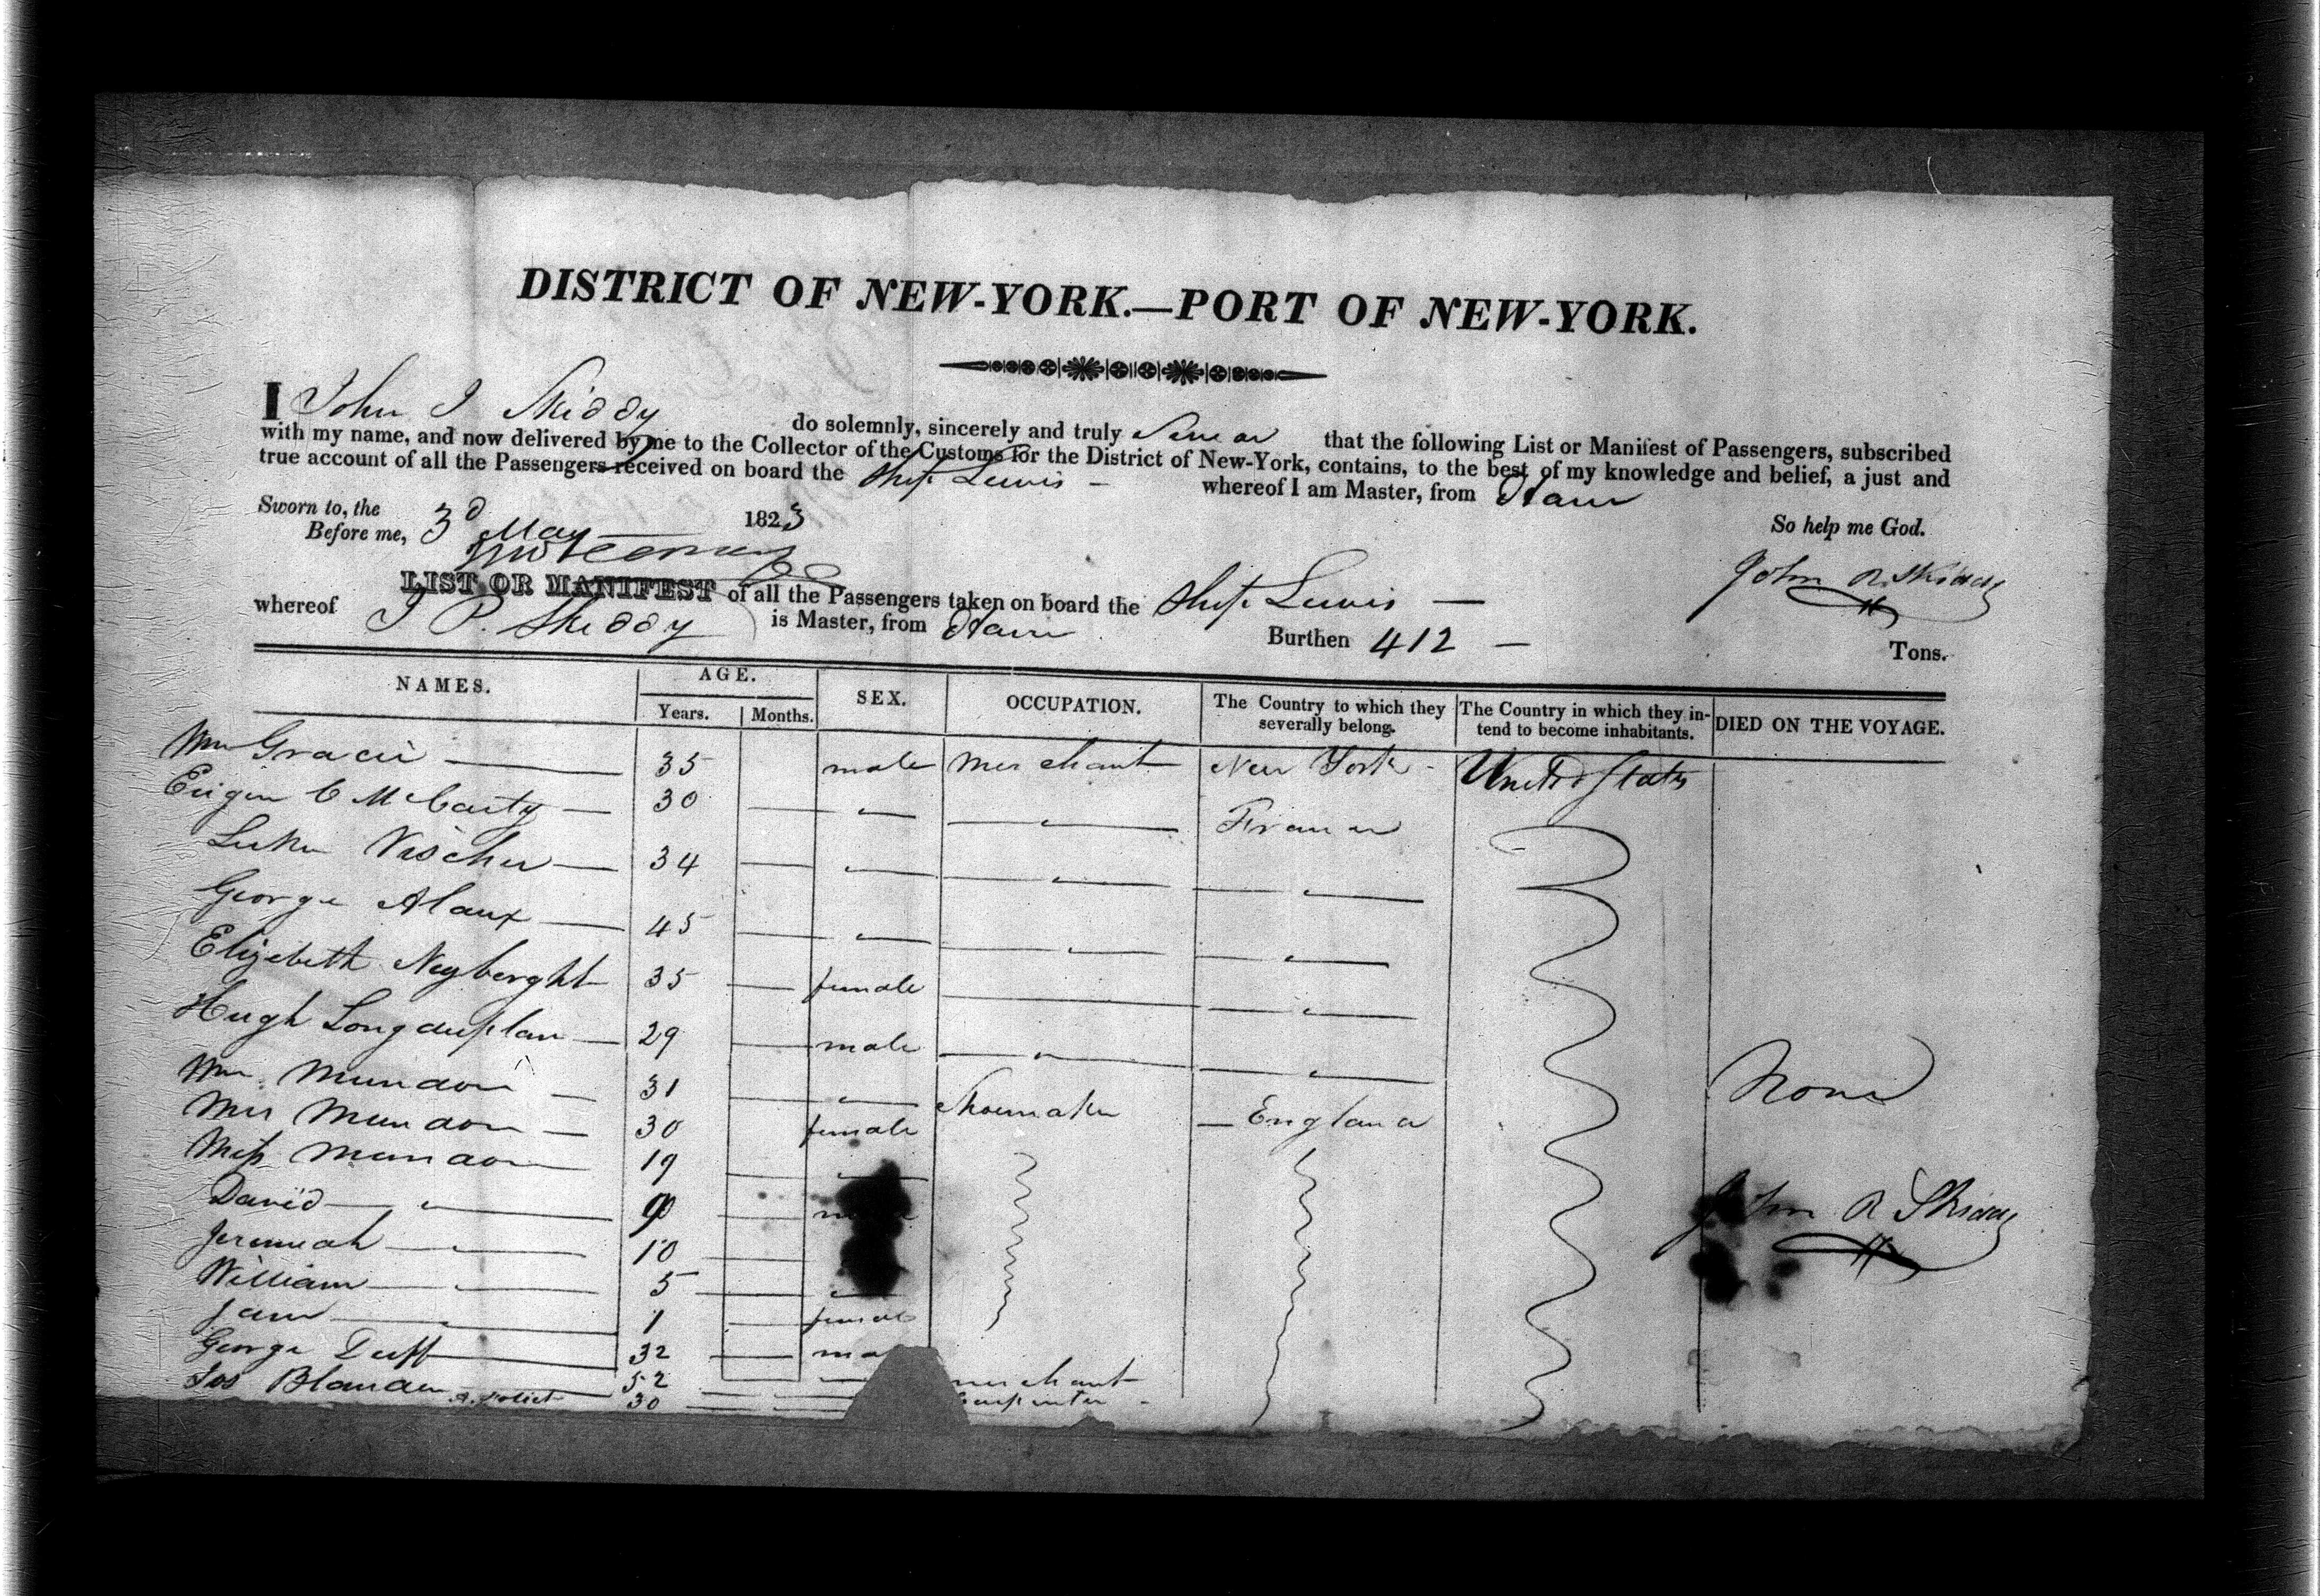 DISTRICT OF NEW-YORK.—PORT OF NEW-YORK.
I John J Skiddy do solemnly, sincerely and truly Swear that the following List or Manifest of Passengers, subscribed
with my name, and now delivered by me to the Collector of the Customs for the District of New-York, contains, to the best of my knowledge and belief, a just and
true account of all the Passengers received on board the Ship Lewis — whereof I am Master, from Havre
Sworn to, the 3d May 1823 So help me God.
Before me,
John R Skiddy
LIST OR MANIFEST of all the Passengers taken on board the Ship Lewis —
whereof J P. Skiddy is Master, from Havre Burthen 412 — Tons.
NAMES. AGE. SEX. OCCUPATION. The Country to which they severally belong. The Country in which they intend to become inhabitants. DIED ON THE VOYAGE.
Years. Months.
Wm Gracie 35 male Merchant New York - United States
Eugene C McCarty 30 France
Luke Vischer 34
George Alaux 45
Elizebeth Neyberght 35 female
Hugh Longauplan 29 male
Wm Mundon 31 Shoemaker England None
Mrs Mundon 30 female
Miss Mundon 19
David 9 male John R Skiddy
Jeremiah 10
William 5
Jane 1 female
George Duff 32 ma
Jos 52 merchant
30 Carpenter